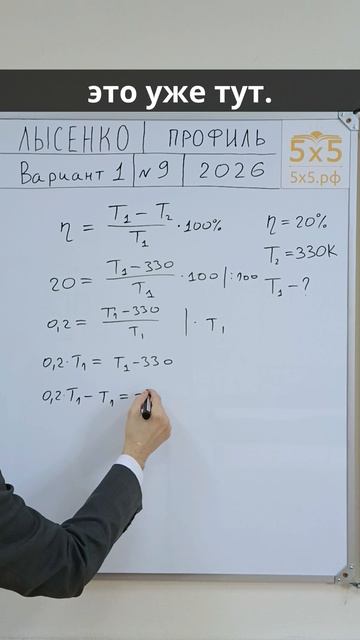 это уже тут.
ЛЫСЕНКО | ПРОФИЛЬ
Вариант 1 | №9 | 2026
5х5
5х5.рф
η = (T₁ − T₂)/T₁ · 100%
η = 20%
T₂ = 330К
T₁ − ?
20 = (T₁ − 330)/T₁ · 100 | : 100
0,2 = (T₁ − 330)/T₁ | · T₁
0,2 · T₁ = T₁ − 330
0,2 · T₁ − T₁ = −